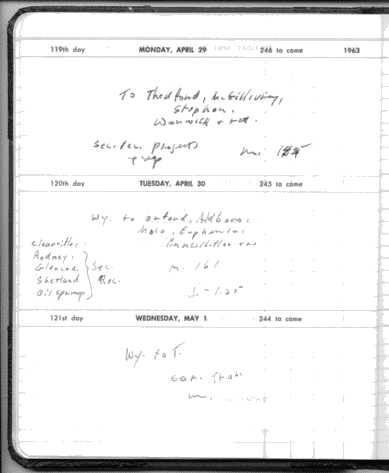 119th day MONDAY, APRIL 29 246 to come 1963
To Thedford, McGillivray,
Stephen,
Warwick + ret.
Sec. Rec. projects mi. 185
120th day TUESDAY, APRIL 30 245 to come
Wy. to Orford, Aldboro,
Mosa, Euphemia,
Clearville,
Rodney,
Glencoe, Sec. m. 161
Shetland Rec.
Oil Springs I - 1.25
121st day WEDNESDAY, MAY 1 244 to come
Wy. to T.